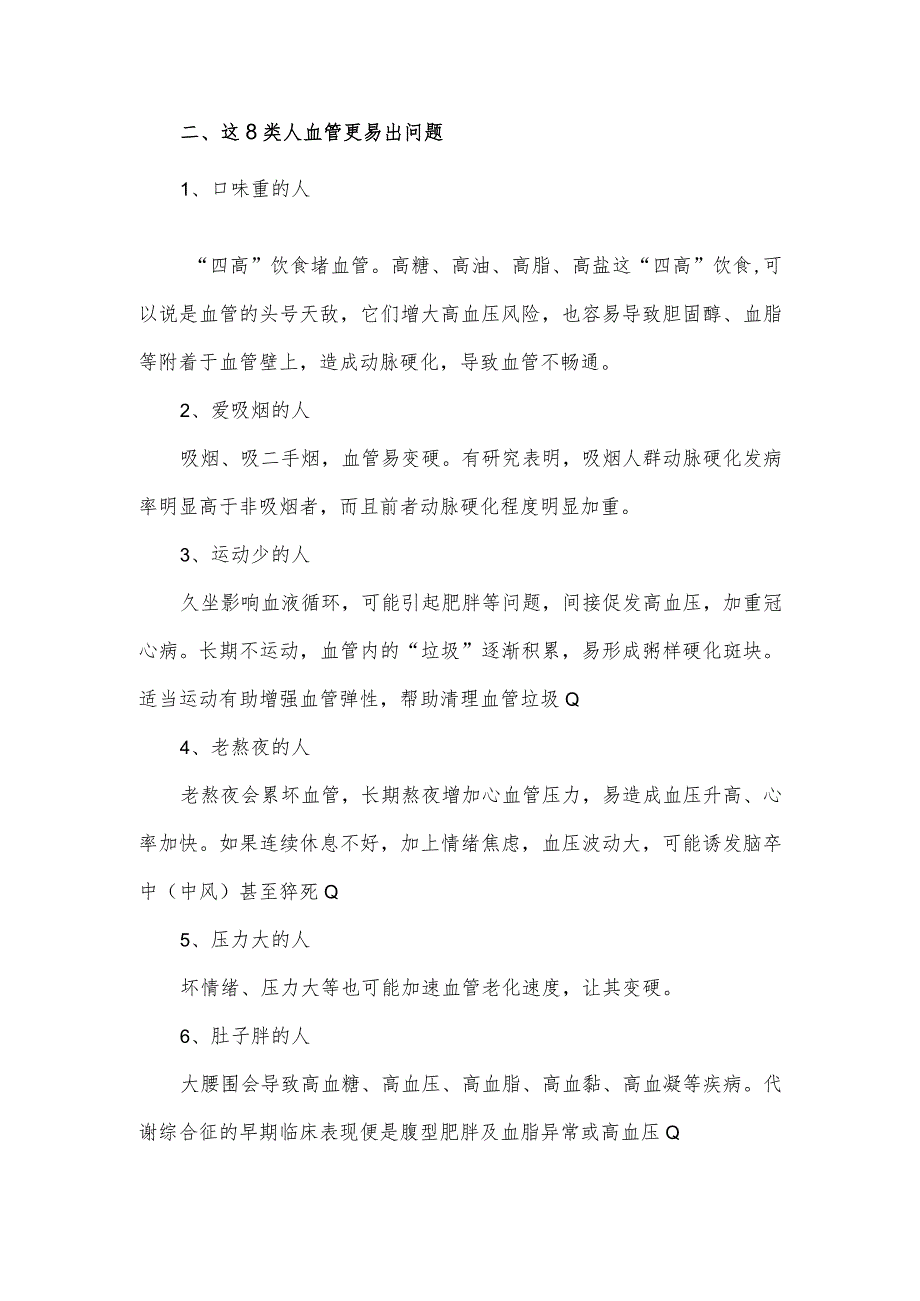 二、这8类人血管更易出问题
1、口味重的人
“四高”饮食堵血管。高糖、高油、高脂、高盐这“四高”饮食,可
以说是血管的头号天敌，它们增大高血压风险，也容易导致胆固醇、血脂
等附着于血管壁上，造成动脉硬化，导致血管不畅通。
2、爱吸烟的人
吸烟、吸二手烟，血管易变硬。有研究表明，吸烟人群动脉硬化发病
率明显高于非吸烟者，而且前者动脉硬化程度明显加重。
3、运动少的人
久坐影响血液循环，可能引起肥胖等问题，间接促发高血压，加重冠
心病。长期不运动，血管内的“垃圾”逐渐积累，易形成粥样硬化斑块。
适当运动有助增强血管弹性，帮助清理血管垃圾Q
4、老熬夜的人
老熬夜会累坏血管，长期熬夜增加心血管压力，易造成血压升高、心
率加快。如果连续休息不好，加上情绪焦虑，血压波动大，可能诱发脑卒
中（中风）甚至猝死Q
5、压力大的人
坏情绪、压力大等也可能加速血管老化速度，让其变硬。
6、肚子胖的人
大腰围会导致高血糖、高血压、高血脂、高血黏、高血凝等疾病。代
谢综合征的早期临床表现便是腹型肥胖及血脂异常或高血压Q